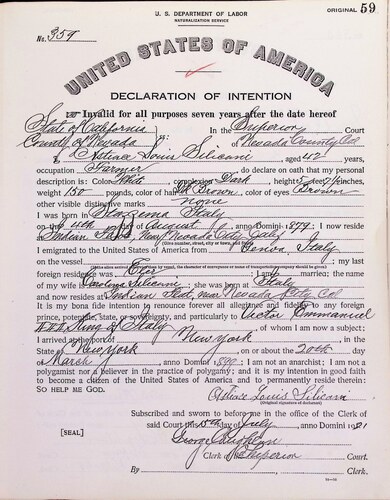 U. S. DEPARTMENT OF LABOR
NATURALIZATION SERVICE
ORIGINAL 59
No. 359
UNITED STATES OF AMERICA
DECLARATION OF INTENTION
Invalid for all purposes seven years after the date hereof
State of California
In the Superior Court
County of Nevada ss: of Nevada County Cal
I, Louis Siliconi, aged 42 years,
occupation Farmer, do declare on oath that my personal
description is: Color White, complexion Dark, height 5 feet 7 inches,
weight 150 pounds, color of hair Bk Brown, color of eyes Brown
other visible distinctive marks none
I was born in Stazzema Italy
on the 4th day of August, anno Domini 1879; I now reside
at Indian Flat, near Nevada City Calif
(Give number, street, city or town, and State.)
I emigrated to the United States of America from Genoa, Italy
on the vessel ; my last
(If the alien arrived otherwise than by vessel, the character of conveyance or name of transportation company should be given.)
foreign residence was ; I am married; the name
of my wife is Siliconi; she was born at Italy
and now resides at Indian Flat, near Nevada City Cal
It is my bona fide intention to renounce forever all allegiance and fidelity to any foreign
prince, potentate, state, or sovereignty, and particularly to Victor Emmanuel
III King of Italy, of whom I am now a subject;
I arrived at the port of New York, in the
State of New York, on or about the 20th day
of March, anno Domini 1899; I am not an anarchist; I am not a
polygamist nor a believer in the practice of polygamy; and it is my intention in good faith
to become a citizen of the United States of America and to permanently reside therein:
SO HELP ME GOD.
Louis Siliconi
(Original signature of declarant.)
Subscribed and sworn to before me in the office of the Clerk of
[SEAL] said Court this 15th day of July, anno Domini 1921
George Coughlan
Clerk of the Superior Court.
By , Clerk.